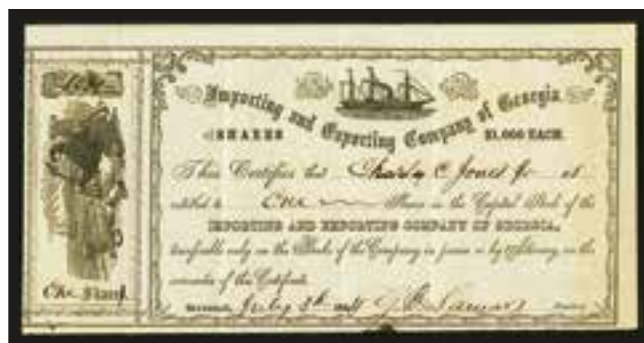 Importing and Exporting Company of Georgia
SHARES $1,000 EACH.
This Certifies that Charles C Jones Jr is
entitled to One Share in the Capital Stock of the
IMPORTING AND EXPORTING COMPANY OF GEORGIA,
transferable only on the Books of the Company in person or by Attorney, on the
surrender of this Certificate.
One Share.
Savannah, July 8th